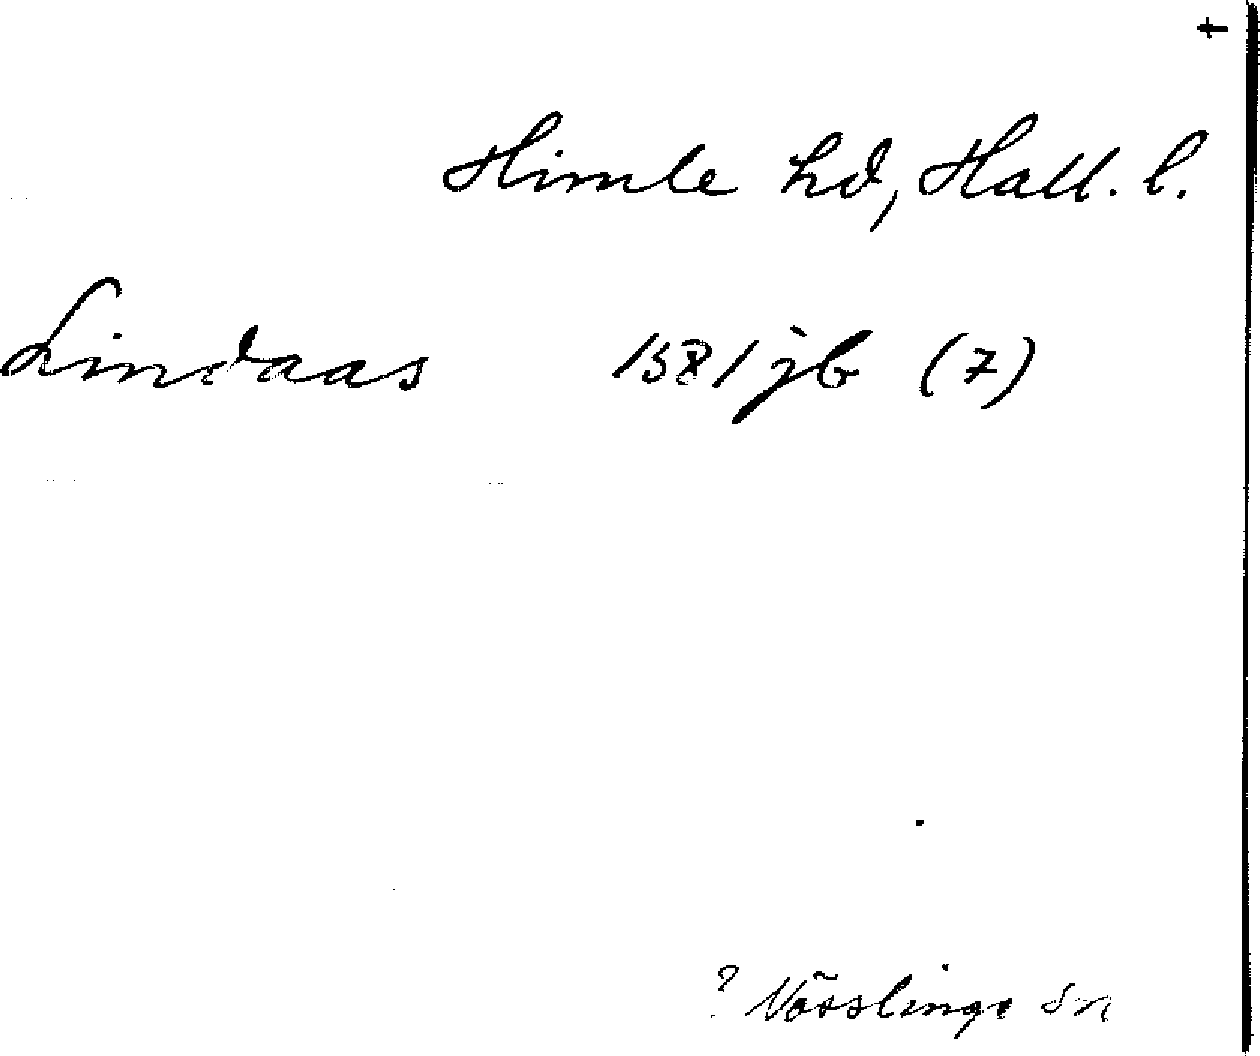 †
Himle hd, Hall. l.
Lindaas 1581 jb (7)
? Nösslinge sn